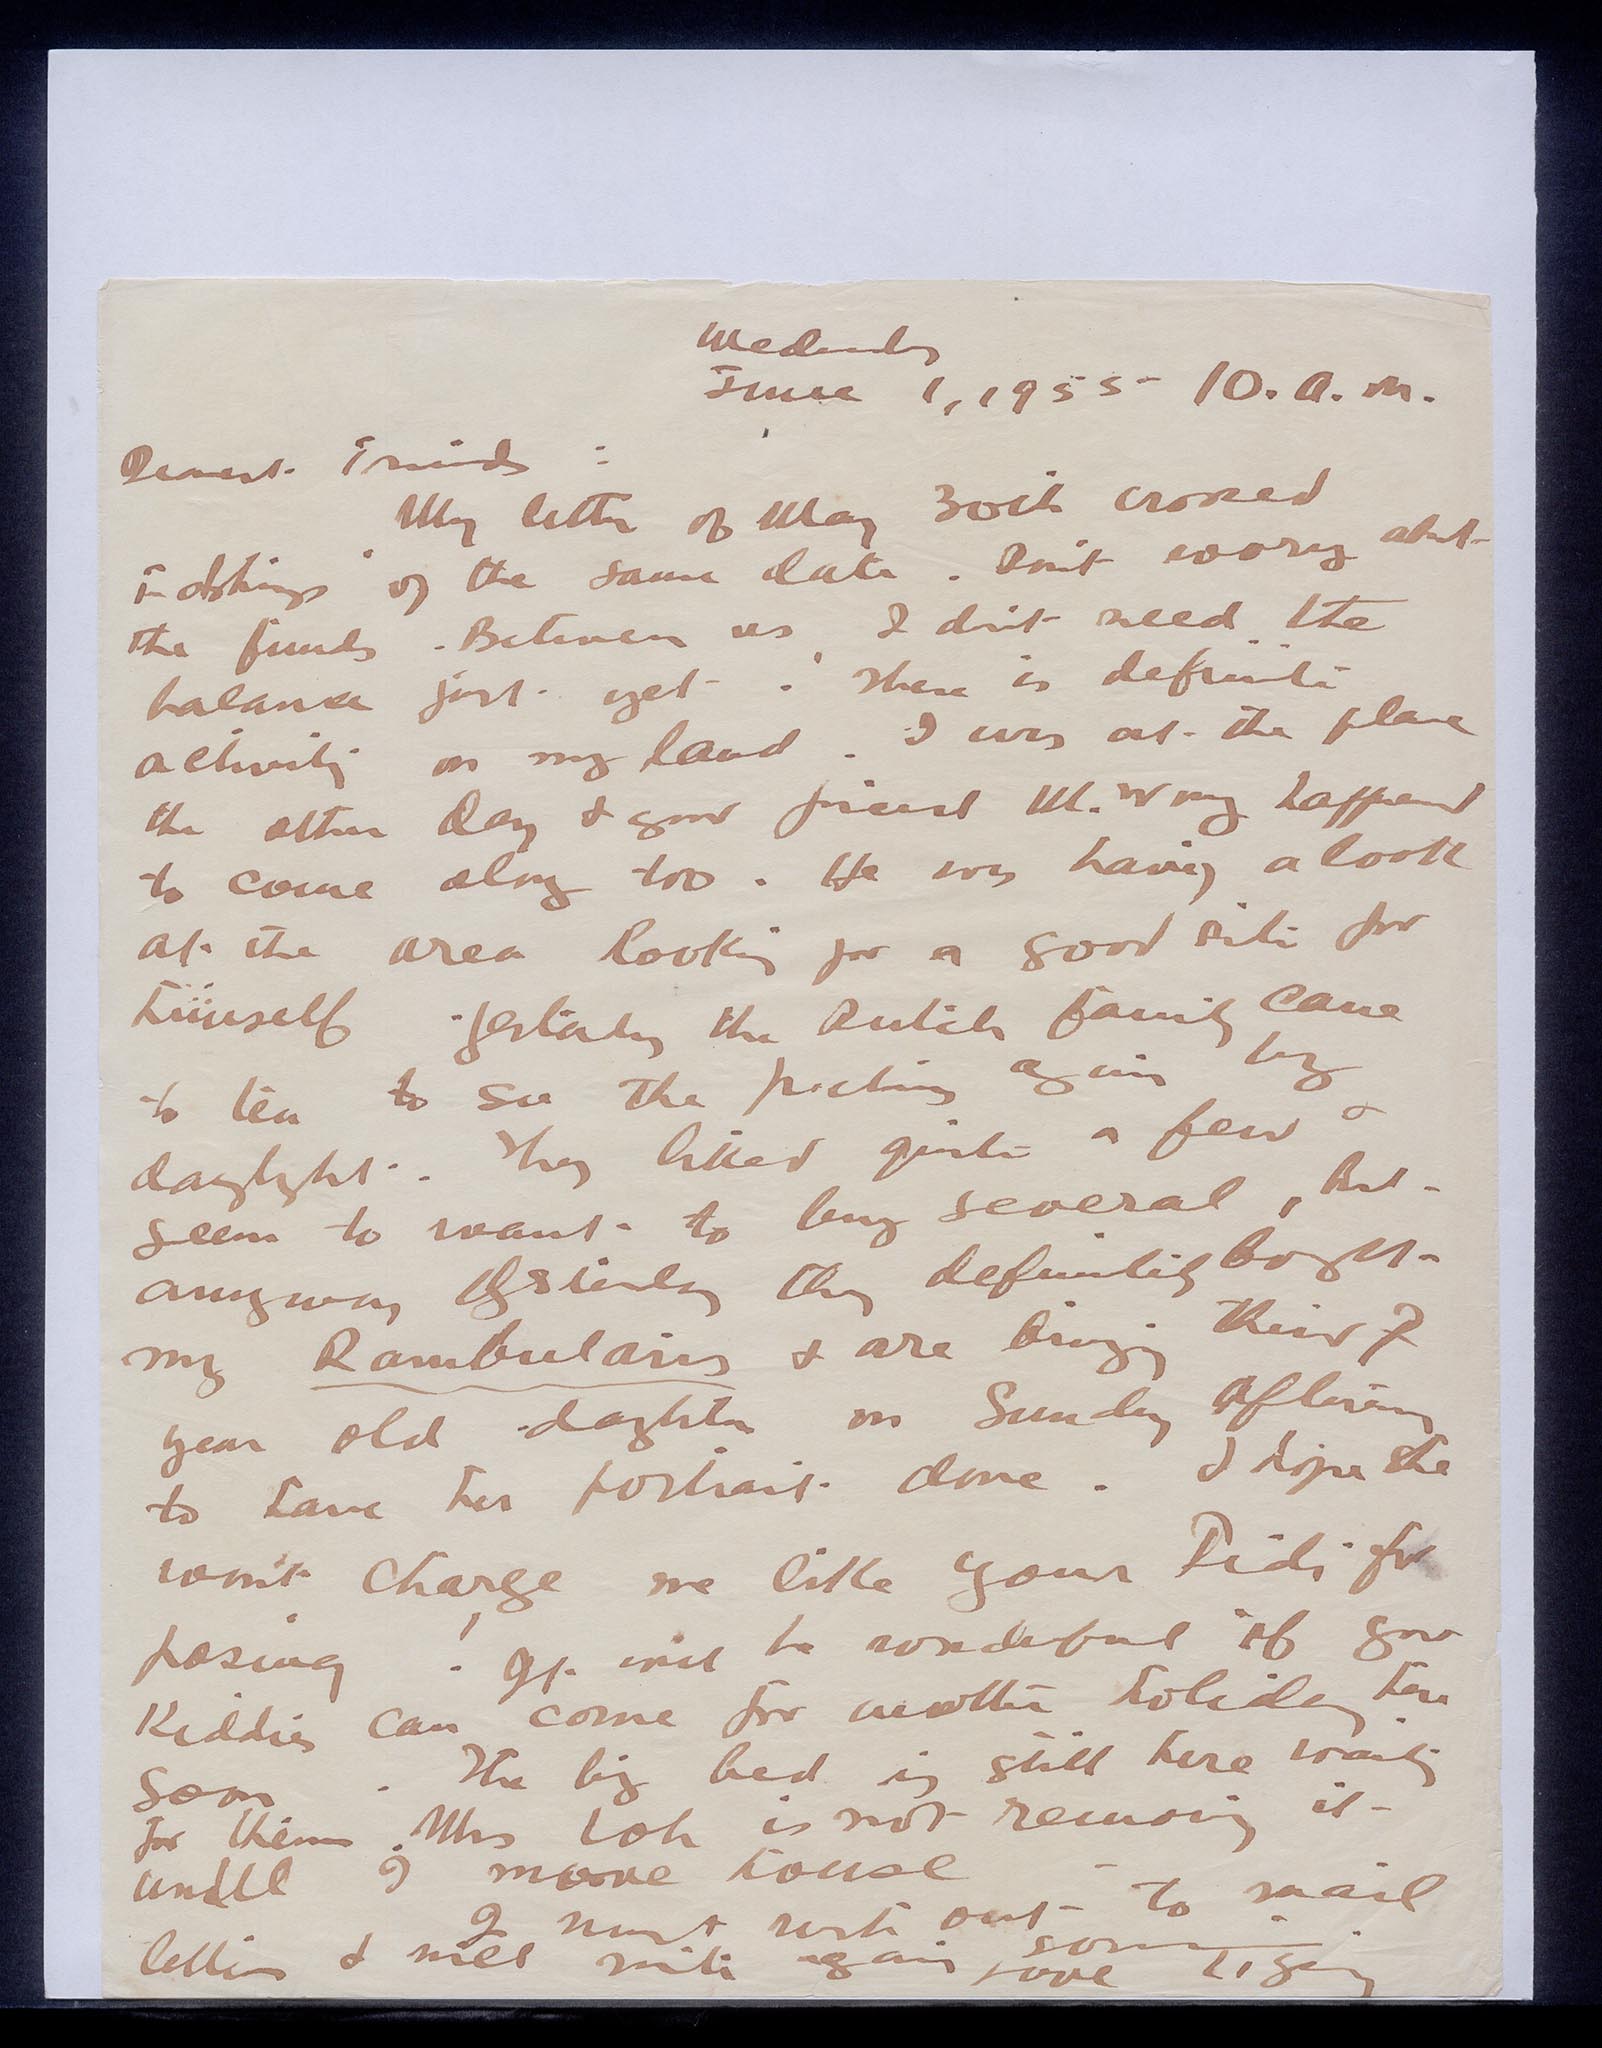 Wednesday
June 1, 1955 10. A. M.
Dearest Friends :
My letter of May 30th crossed
of the same date. Don't worry about
the funds. Between us, I don't need the
balance just yet. There is definite
activity on my land. I was at the place
the other day & your friend Mr. Wong happened
to come along too. He was having a look
at the area looking for a good site for
himself. Yesterday the Dutch family came
to tea to see the pictures again by
daylight. They liked quite a few &
seem to want to buy several, but
anyway yesterday they definitely bought
my Rambutans & are bringing their 7
year old daughter on Sunday afternoon
to have her portrait done. I hope she
won't charge me like your Didi for
posing! It will be wonderful if your
Kiddies can come for another holiday here
soon. The big bed is still here waiting
for them. Mrs Loh is not removing it
until I move house
I must rush out to mail
letters & will write again soon
Love